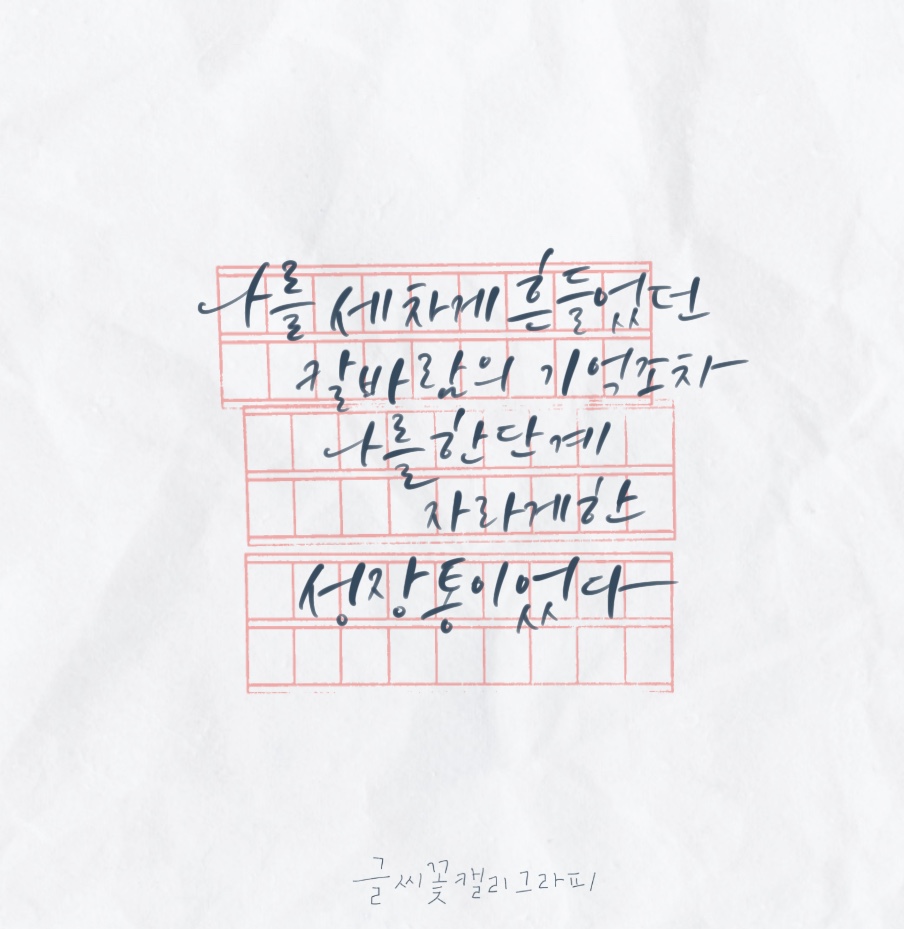 나를 세차게 흔들었던
칼바람의 기억조차
나를 한 단계
자라게 한
성장통이었다
글씨꽃캘리그라피